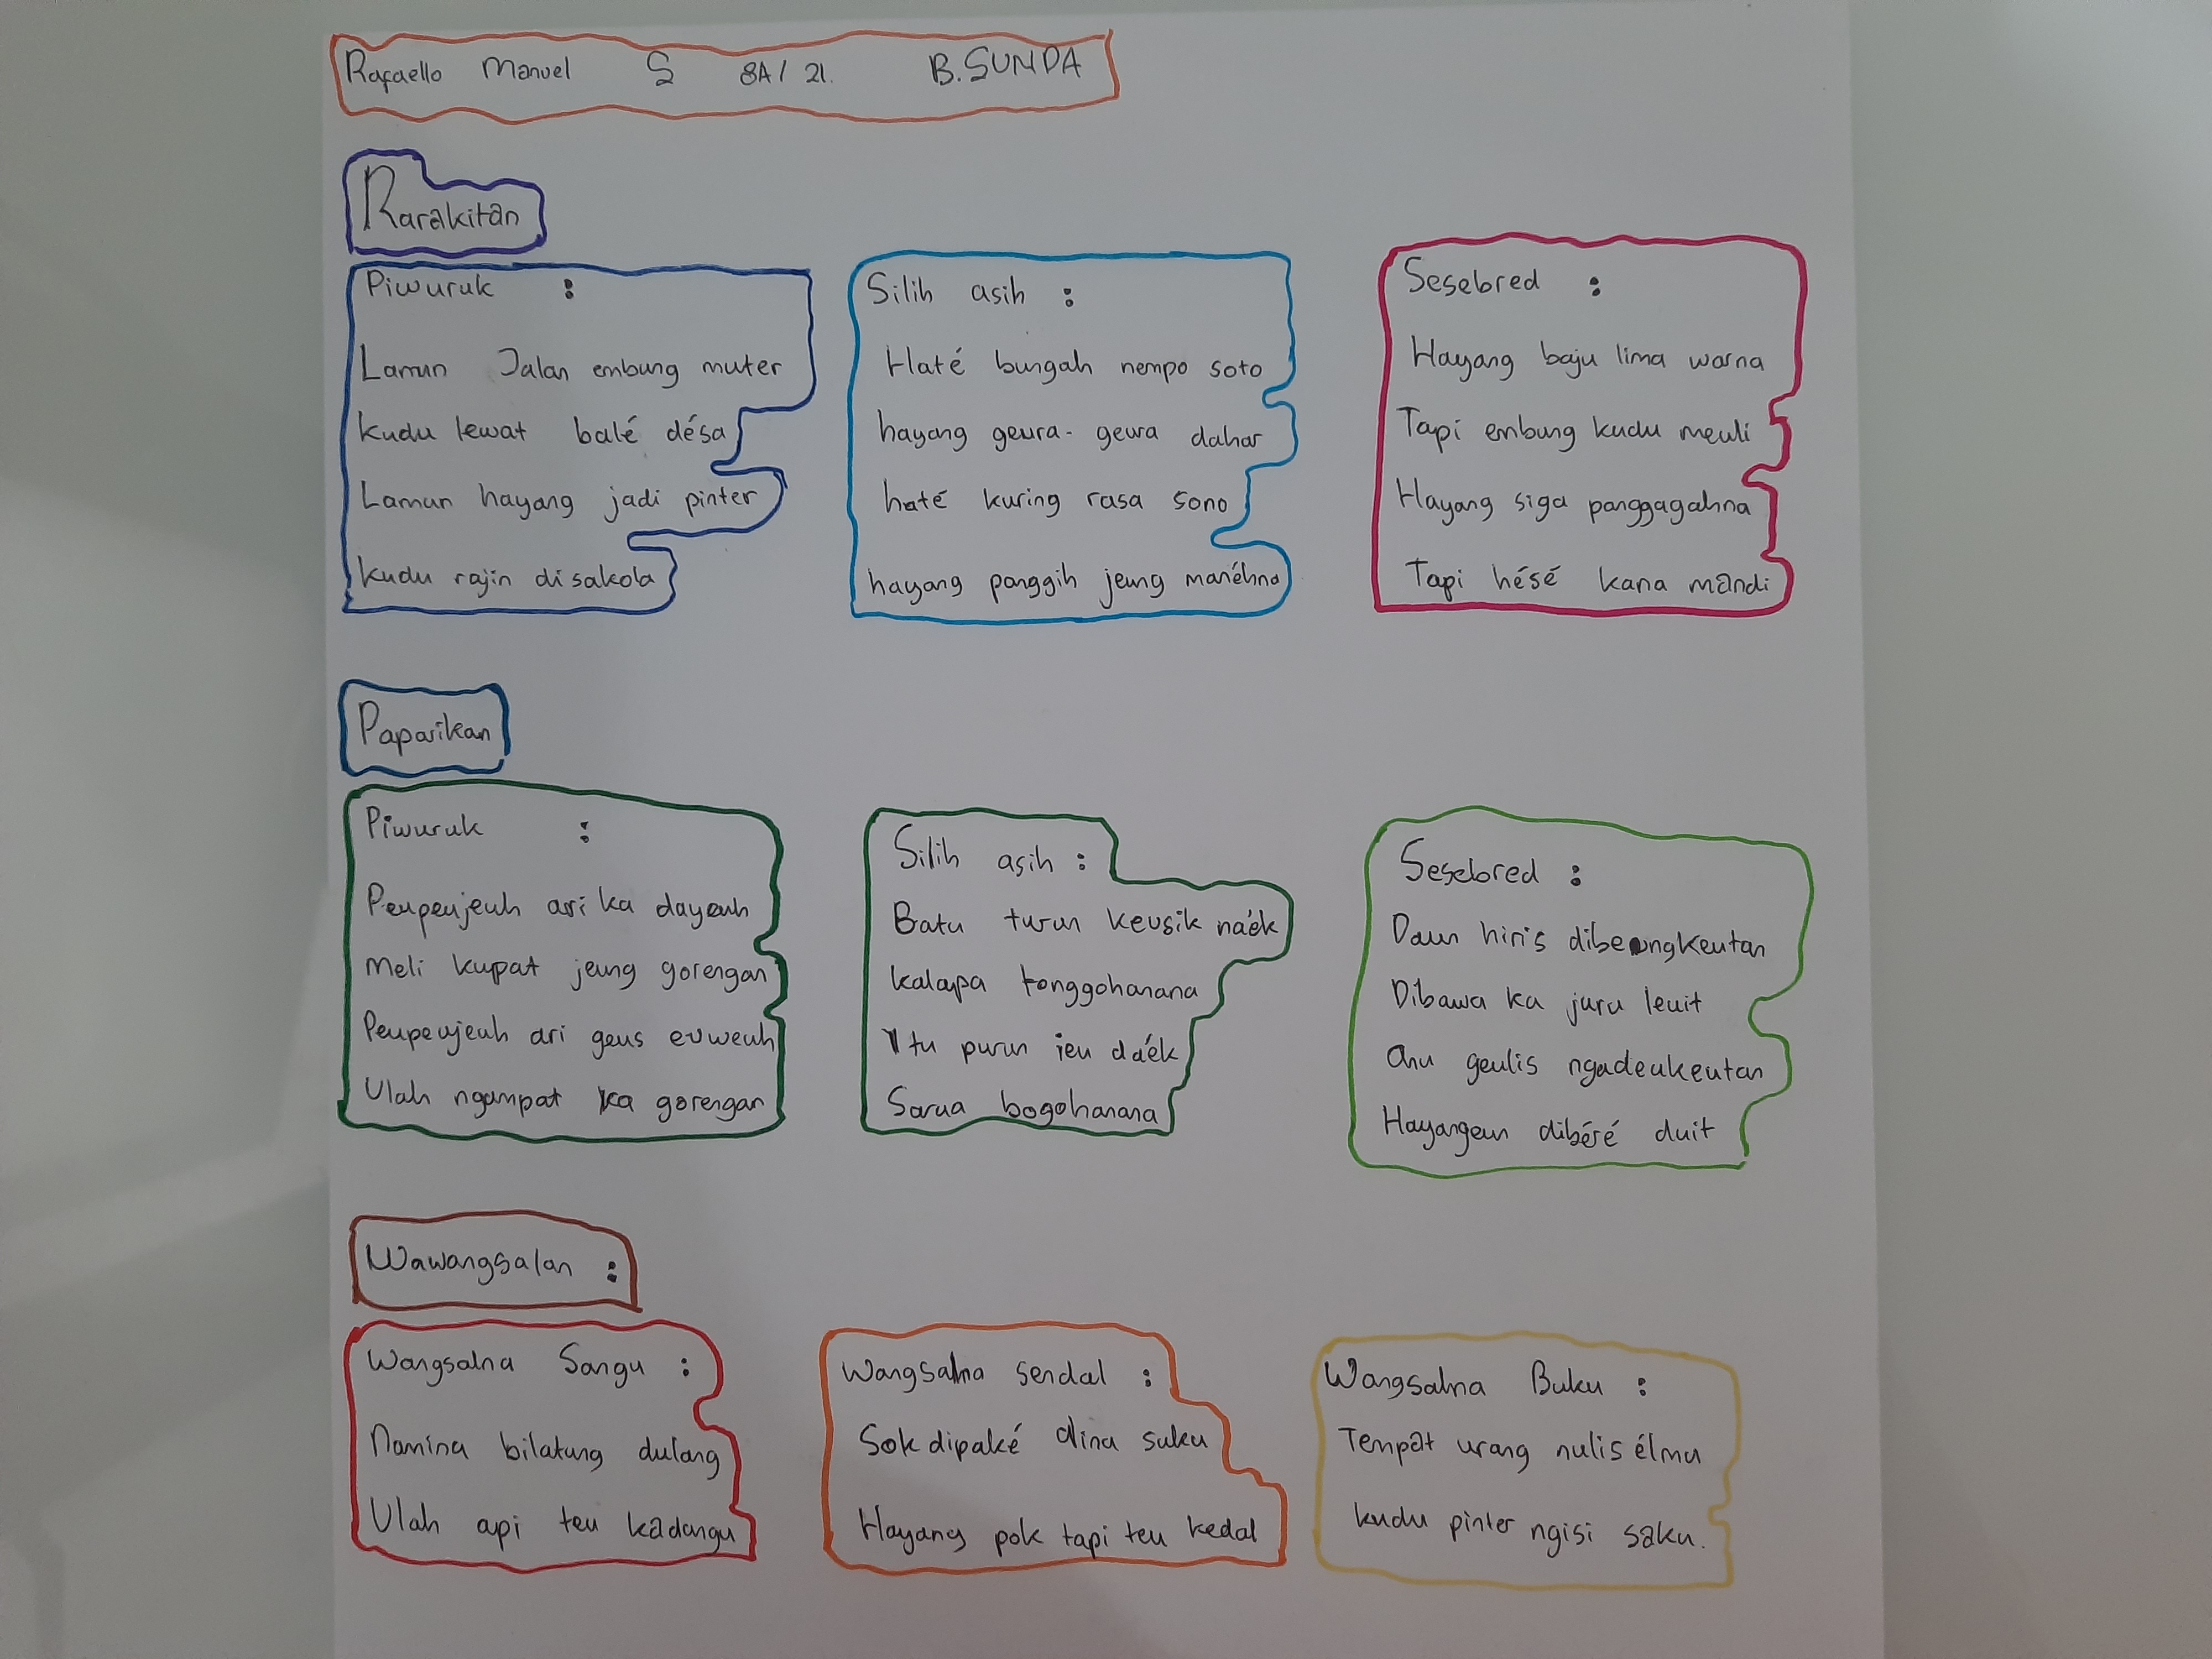 Rafaello Manuel S 8A / 21. B.SUNDA
Rarakitan
Piwuruk :
Lamun Jalan embung muter
kudu lewat balé désa
Lamun hayang jadi pinter
kudu rajin di sakola
Silih asih :
Haté bungah nempo soto
hayang geura-geura dahar
haté kuring rasa sono
hayang panggih jeung manéhna
Sesebred :
Hayang baju lima warna
Tapi embung kudu meuli
Hayang siga panggagahna
Tapi hésé kana mandi
Paparikan
Piwuruk :
Peupeujeuh ari ka dayeuh
Meli kupat jeung gorengan
Peupeujeuh ari geus euweuh
Ulah ngampat ka gorengan
Silih asih :
Batu turun keusik naék
kalapa tonggohanana
Itu purun ieu daék
Sarua bogohanana
Sesebred :
Daun hiris dibeungkeutan
Dibawa ka juru leuit
anu geulis ngadeukeutan
Hayangeun dibéré duit
Wawangsalan :
Wangsalna Sangu :
Namina bilatung dulang
Ulah api teu kadangu
Wangsalna sendal :
Sok dipaké dina suku
Hayang pok tapi teu kedal
Wangsalna Buku :
Tempat urang nulis élmu
kudu pinter ngisi saku.